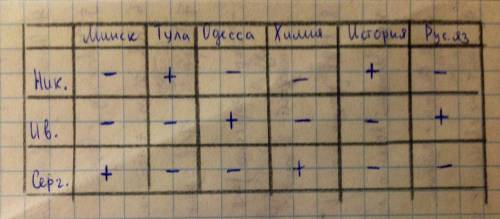 Минск Тула Одесса Химия История Рус.яз
Ник. - + - - + -
Ив. - - + - - +
Серг. + - - + - -